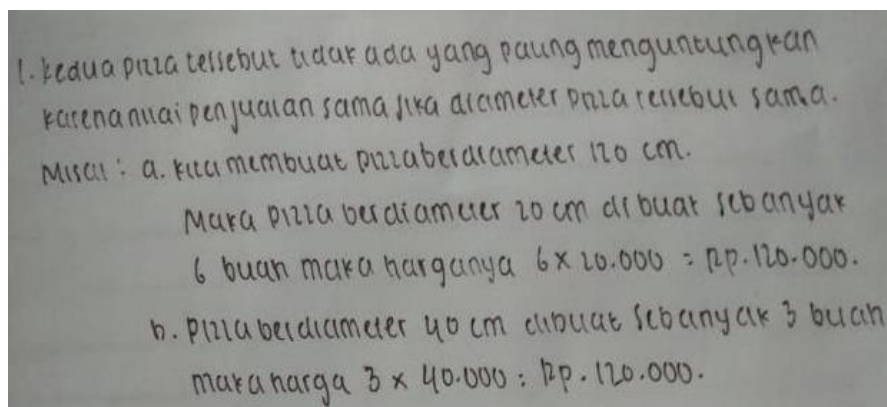 1. kedua pizza tersebut tidak ada yang paling menguntungkan
karena nilai penjualan sama jika diameter pizza tersebut sama.
Misal : a. kita membuat pizza berdiameter 120 cm.
Maka pizza berdiameter 20 cm dibuat sebanyak
6 buah maka harganya 6 x 20.000 = Rp. 120.000.
b. Pizza berdiameter 40 cm dibuat sebanyak 3 buah
maka harga 3 x 40.000 = Rp. 120.000.